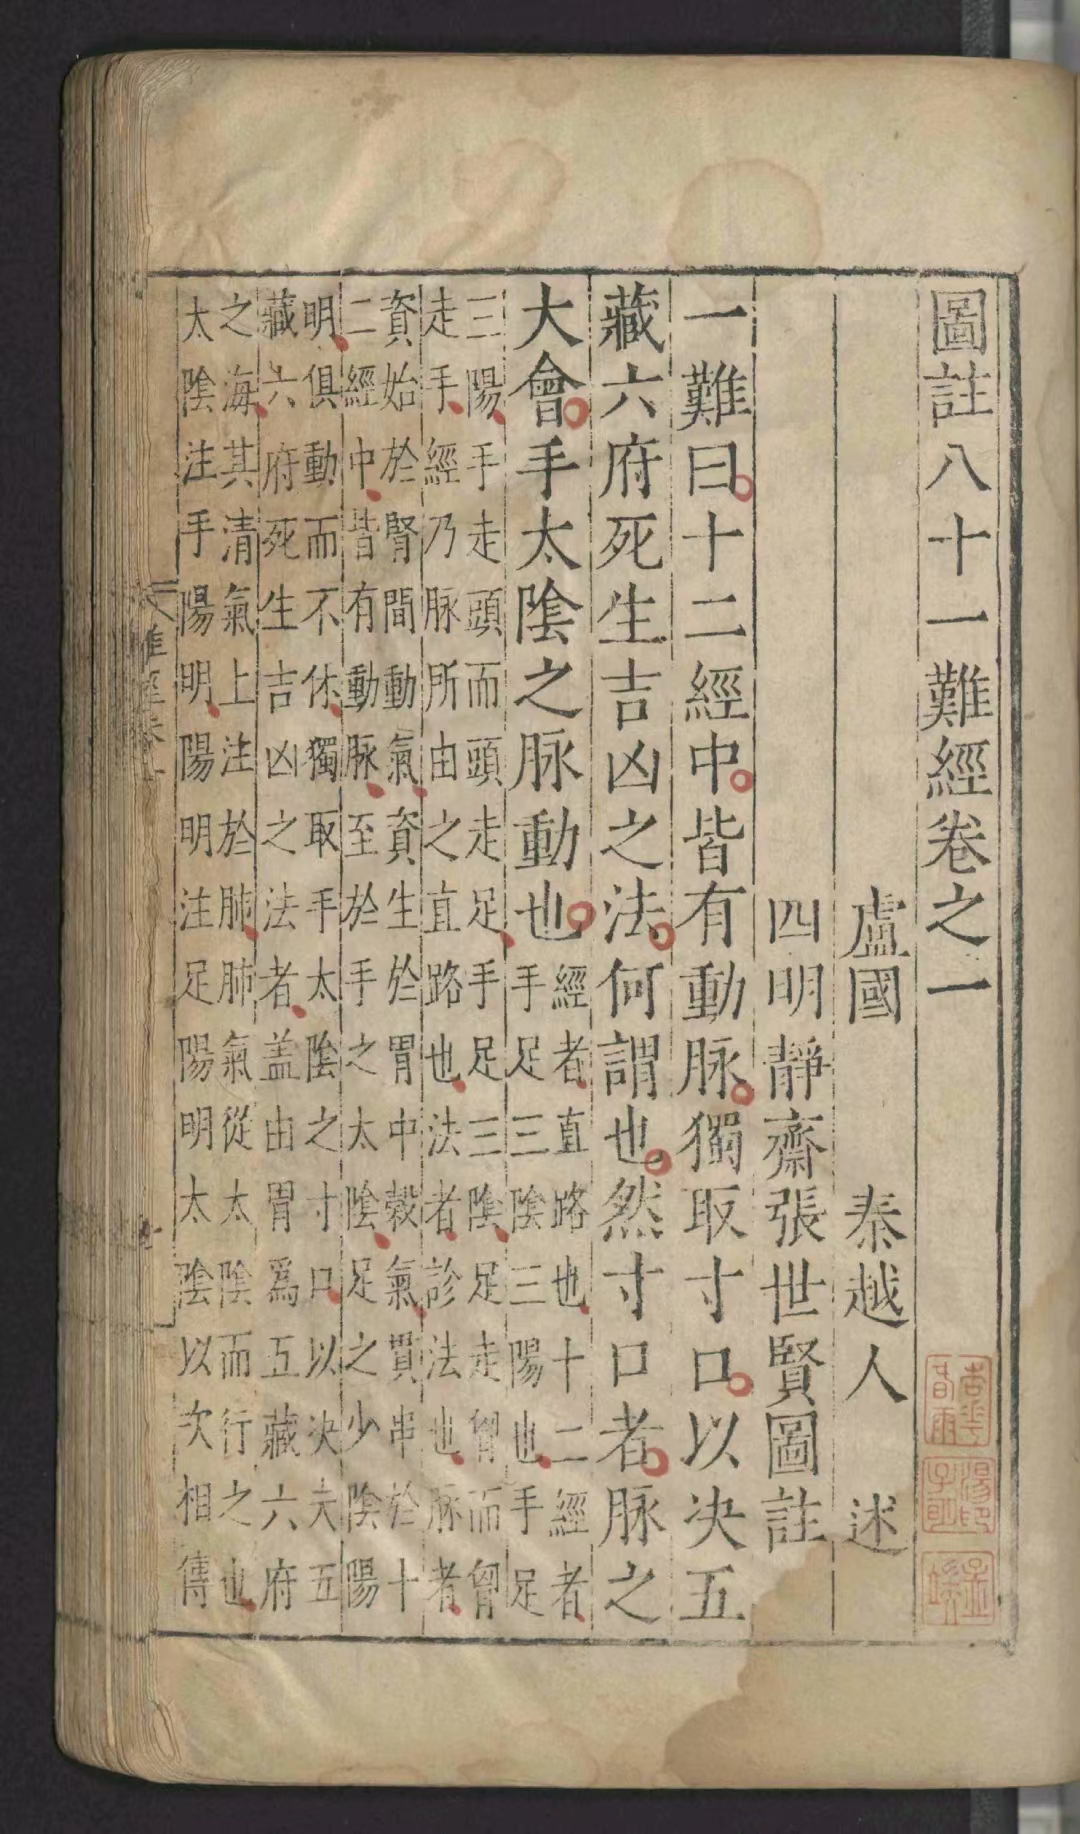 圖註八十一難經卷之一
盧國 秦越人 述
四明靜齋張世賢圖註
一難曰十二經中皆有動脉獨取寸口以决五
藏六府死生吉凶之法何謂也然寸口者脉之
大會手太陰之脉動也
經者直路也十二經者
手足三陰三陽也手足
三陽手走頭而頭走足手足三陰足走胷而胷
走手經乃脉所由之直路也法者診法也脉者
資始於腎間動氣資生於胃中榖氣貫串於十
二經中皆有動脉至於手之太陰足之少陰陽
明俱動而不休獨取手太陰之寸口以决夫五
藏六府死生吉凶之法者盖由胃爲五藏六府
之海其清氣上注於肺肺氣從太陰而行之也
太陰注手陽明陽明注足陽明太陰以次相傳